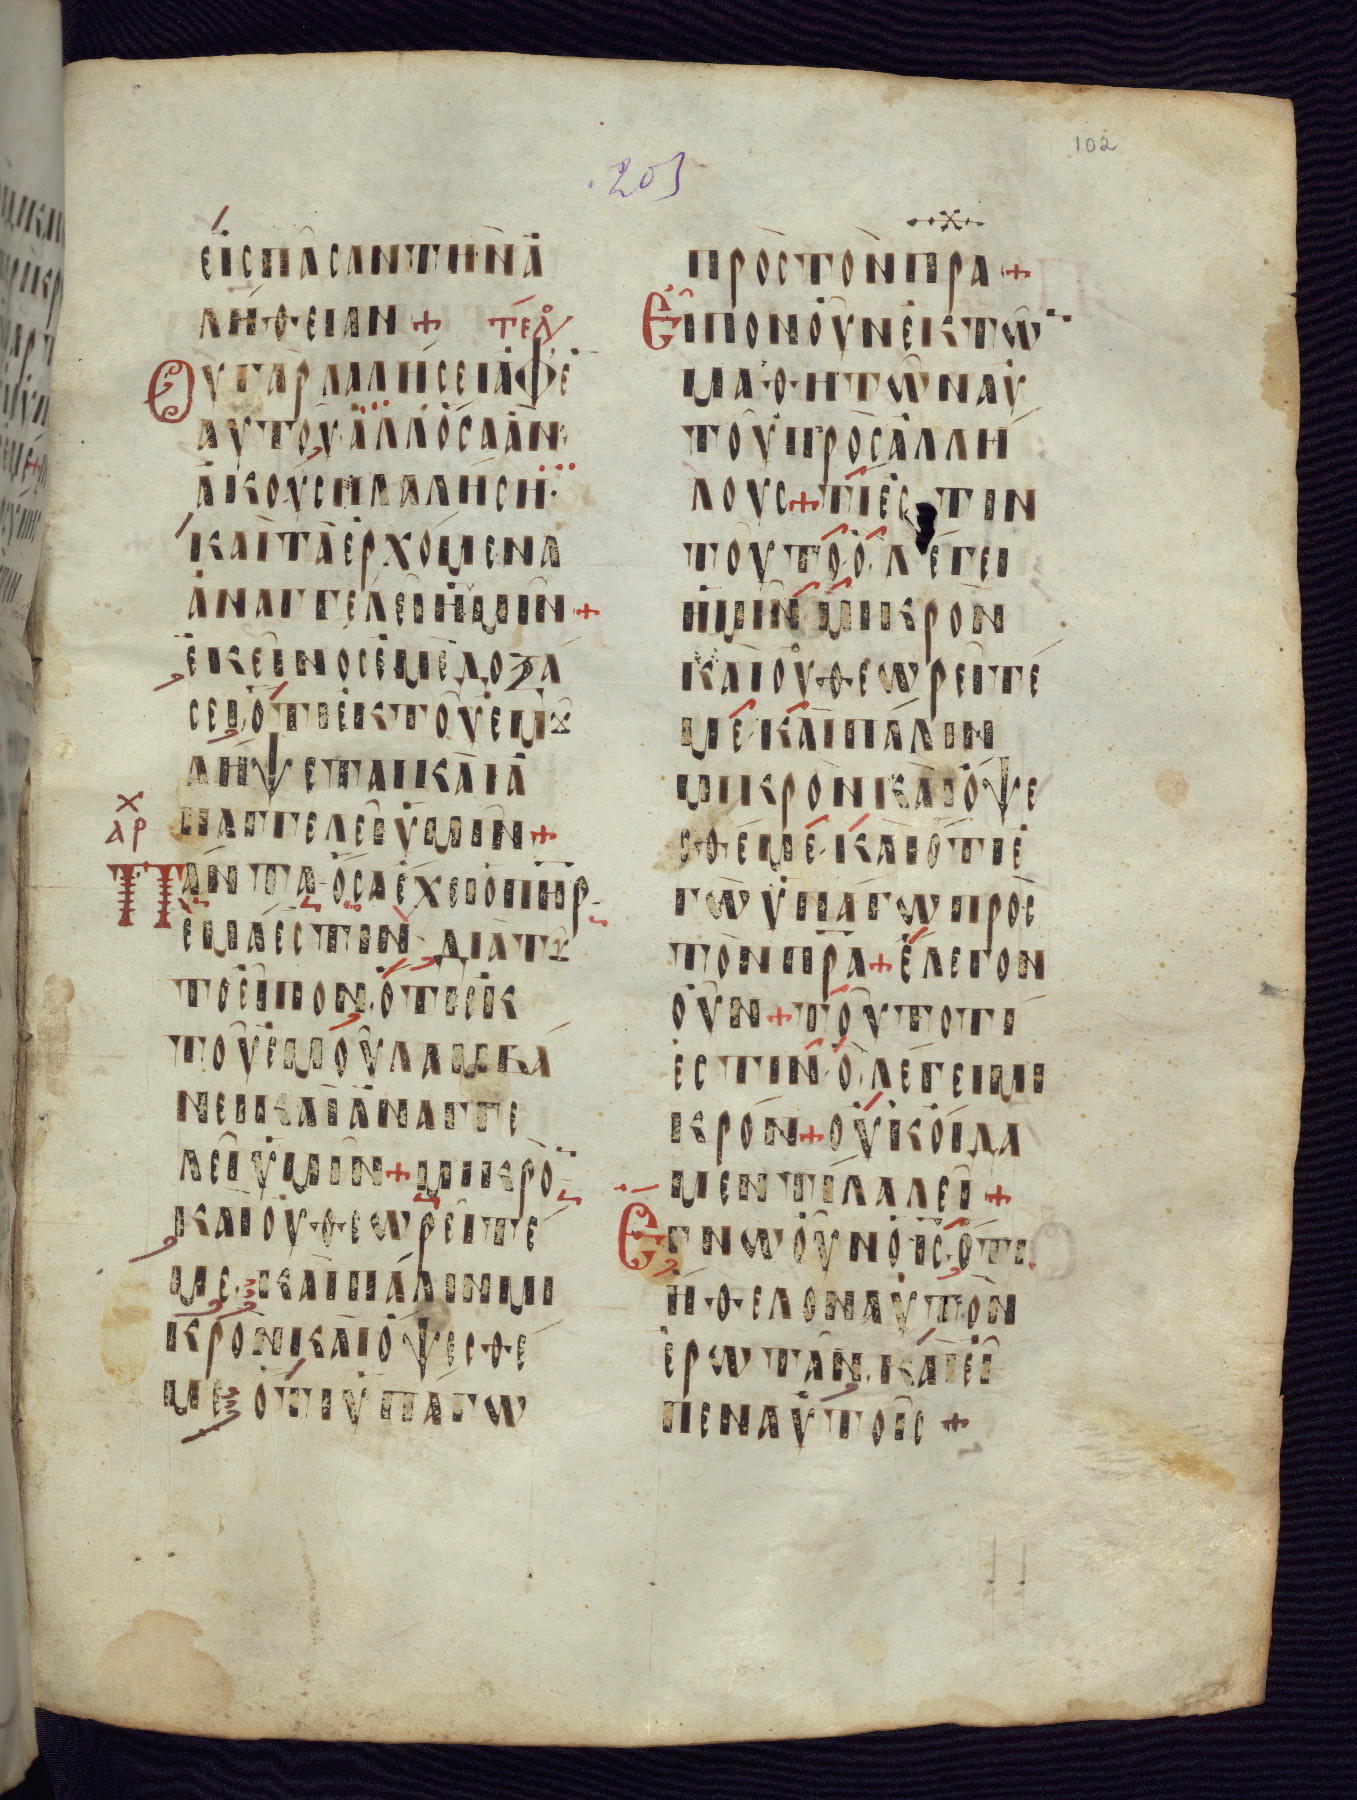 102
203
εἰς πᾶσαν τὴν ἀ
λήθειαν + τελ
Οὐ γὰρ λαλήσει ἀφ' ἑ
αυτοῦ ἀλλ' ὅσα ἂν
ἀκούσῃ λαλήσῃ·
καὶ τὰ ἐρχόμενα
ἀναγγελεῖ ἡμῖν +
ἐκεῖνος ἐμὲ δοξά
σει ὅτι ἐκ τοῦ ἐμȣ
λήψεται καὶ ἀ
ναγγελεῖ ὑμῖν +
χ
αρ
Πάντα ὅσα ἔχει ὁ πη̅ρ
ἐμά ἐστιν· διὰ τȣ
το εἶπον ὅτι ἐκ
τοῦ ἐμοῦ λαμβά
νει καὶ ἀναγγε
λεῖ ὑμῖν + μικρὸ
καὶ οὐ θεωρεῖτέ
με· καὶ πάλιν μι
κρὸν καὶ ὄψεσθέ
με· ὅτι ὑπάγω
πρὸς τὸν πρα +
Εἶπον οὖν ἐκ τῶ
μαθητῶν αὐ
τοῦ πρὸς ἀλλή
λους + τί ἐστιν
τοῦτο ὃ λέγει
ἡμῖν μικρὸν
καὶ οὐ θεωρεῖτέ
με· καὶ πάλιν
μικρὸν καὶ ὄψε
σθέ με· καὶ ὅτι ἐ
γὼ ὑπάγω πρὸς
τὸν πρ̅α + ἔλεγον
οὖν + τοῦτο τί
ἐστιν ὃ λέγει μι
κρόν + οὐκ οἴδα
μεν τί λαλεῖ +
Ἔγνω οὖν ὁ ι̅ς ὅτι
ἤθελον αὐτὸν
ἐρωτᾶν· καὶ εἶ
πεν αὐτοῖς +